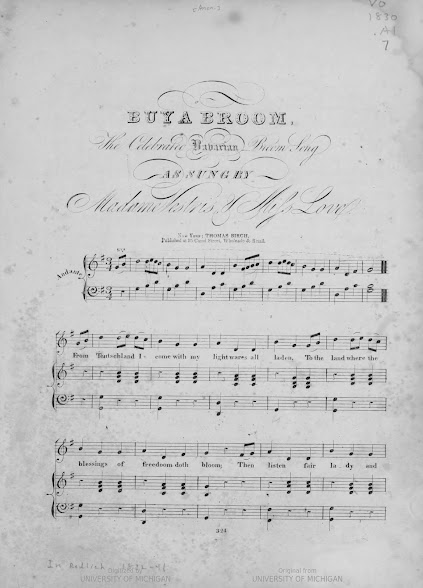 Vo
1830
.A1
7
BUY A BROOM,
The Celebrated Bavarian Broom Song
AS SUNG BY
Madame Vestris & Miss Love
New York: THOMAS BIRCH,
Published at Canal Street, Wholesale & Retail.
Andante
From Teutschland I come with my light wares all laden, To the land where the
blessings of freedom doth bloom; Then listen fair lady and
324
Digitized by
UNIVERSITY OF MICHIGAN
Original from
UNIVERSITY OF MICHIGAN